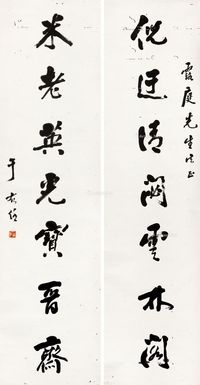 庭先生法正
倪迂清閟雲林閣
米老英光寶晉齋
于右任